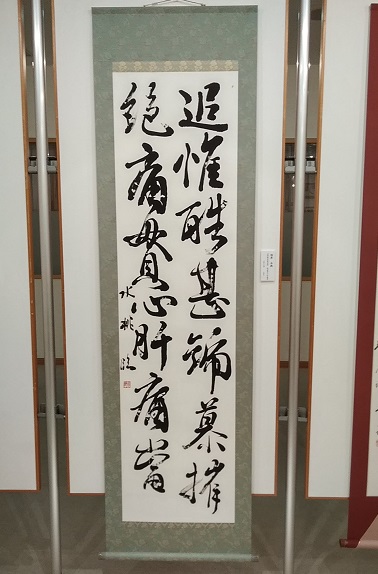 追惟酷甚號慕摧
絶痛貫心肝痛當
水桃臨